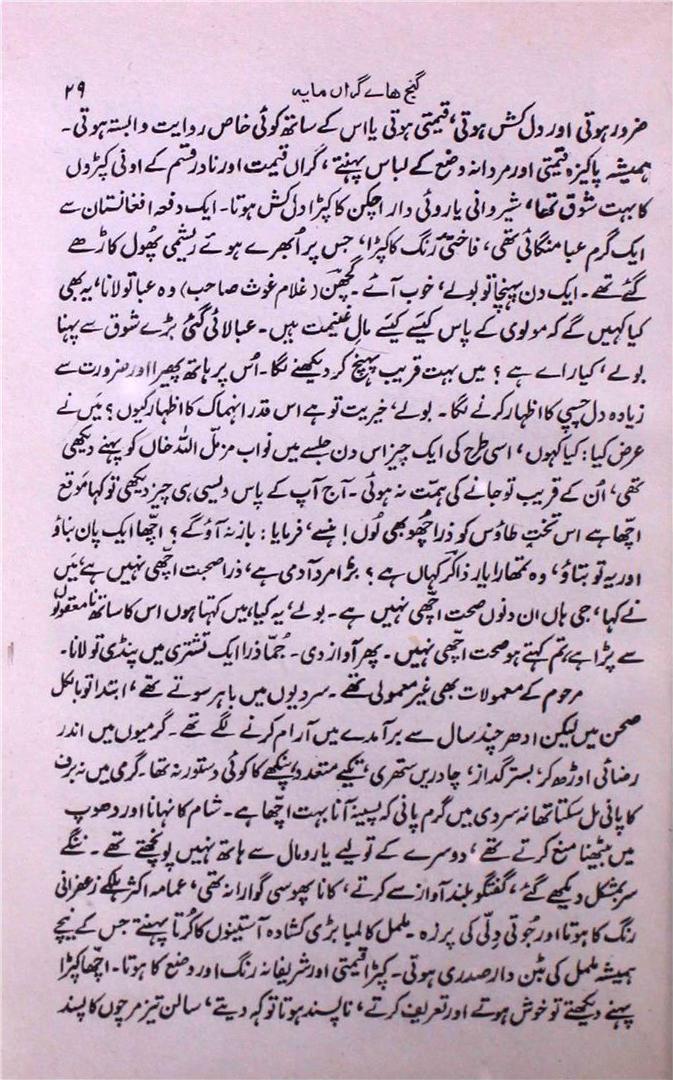 گنج ہاے گراں مایہ ۲۹
ضرور ہوتی اور دل کش ہوتی، قیمتی ہوتی یا اس کے ساتھ کوئی خاص روایت وابستہ ہوتی۔
ہمیشہ پاکیزہ قیمتی اور مردانہ وضع کے لباس پہنتے، گراں قیمت اور نادر قسم کے اونی کپڑوں
کا بہت شوق تھا، شیروانی یا روئی دار اچکن کا کپڑا دل کش ہوتا۔ ایک دفعہ افغانستان سے
ایک گرم عبا منگائی تھی، فاختئی رنگ کا کپڑا، جس پر اُبھرے ہوئے ریشمی پھول کاڑھے
گئے تھے۔ ایک دن پہنچا تو بولے، خوب آئے۔ گچھن (غلام غوث صاحب) وہ عبا تو لانا، یہ بھی
کیا کہیں گے کہ مولوی کے پاس کیسے کیسے مالِ غنیمت ہیں۔ عبا لائی گئی بڑے شوق سے پہنا
بولے، کیا راے ہے؟ میں بہت قریب پہنچ کر دیکھنے لگا۔ اُس پر ہاتھ پھیرا اور ضرورت سے
زیادہ دل چسپی کا اظہار کرنے لگا۔ بولے، خیریت تو ہے اس قدر انہماک کا اظہار کیوں؟ میں نے
عرض کیا: کیا کہوں، اسی طرح کی ایک چیز اس دن جلسے میں نواب مزمل اللہ خاں کو پہنے دیکھی
تھی، اُن کے قریب تو جانے کی ہمّت نہ ہوئی۔ آج آپ کے پاس ویسی ہی چیز دیکھی تو کہا موقع
اچھا ہے اس تختِ طاؤس کو ذرا چھو بھی لُوں! ہنسے، فرمایا: باز نہ آؤ گے؟ اچھا ایک پان بناؤ
اور یہ تو بتاؤ، وہ تمھارا یار ذاکر کہاں ہے؟ بڑا مرد آدمی ہے، ذرا صحت اچھی نہیں ہے، میں
نے کہا، جی ہاں ان دنوں صحت اچھی نہیں ہے۔ بولے، یہ کیا، میں کہتا ہوں اس کا ساتھ نامعقولوں
سے پڑا ہے، تم کہتے ہو صحت اچھی نہیں۔ پھر آواز دی۔ جُمّا ذرا ایک تشتری میں پنڈی تو لانا۔
مرحوم کے معمولات بھی غیر معمولی تھے۔ سردیوں میں باہر سوتے تھے، ابتدا تو بالکل
صحن میں لیکن ادھر چند سال سے برآمدے میں آرام کرنے لگے تھے۔ گرمیوں میں اندر
رضائی اوڑھ کر، بستر گداز، چادریں ستھری، تکیے متعدد، پنکھے کا کوئی دستور نہ تھا۔ گرمی میں نہ برف
کا پانی مل سکتا تھا نہ سردی میں گرم پانی کہ پسینہ آنا بہت اچھا ہے۔ شام کا نہانا اور دھوپ
میں بیٹھنا منع کرتے تھے، دوسرے کے تولیے یا رومال سے ہاتھ نہیں پونچھتے تھے۔ ننگے
سر بمشکل دیکھے گئے، گفتگو بلند آواز سے کرتے، کانا پھوسی گوارا نہ تھی، عمامہ اکثر ہلکے زعفرانی
رنگ کا ہوتا اور جُوتی دِلّی کی پرزہ۔ ململ کا لمبا بڑی کشادہ آستینوں کا کُرتا پہنتے جس کے نیچے
ہمیشہ ململ کی بٹن دار صدری ہوتی۔ کپڑا قیمتی اور شریفانہ رنگ اور وضع کا ہوتا۔ اچھا کپڑا
پہنے دیکھتے تو خوش ہوتے اور تعریف کرتے، ناپسند ہوتا تو کہہ دیتے، سالن تیز مرچوں کا پسند